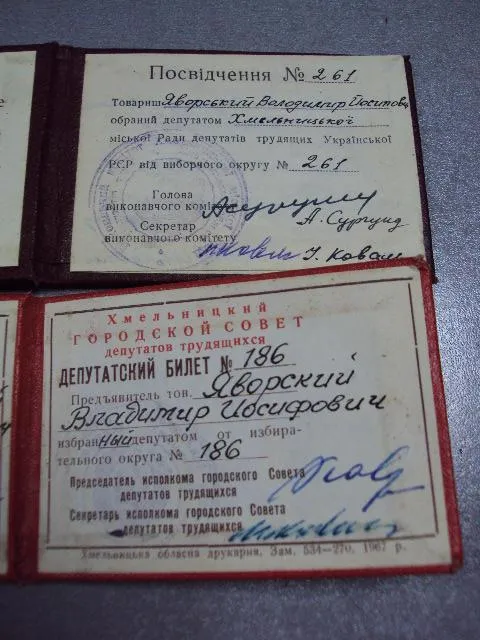 Посвідчення № 261
Товариш Яворський Володимир Йосипович
обраний депутатом Хмельницької
міської Ради депутатів трудящих Української
РСР від виборчого округу № 261
Голова
виконавчого комітету
А. Сургунд
Секретар
виконавчого комітету
І. Коваль
Хмельницкий
ГОРОДСКОЙ СОВЕТ
депутатов трудящихся
ДЕПУТАТСКИЙ БИЛЕТ № 186
Предъявитель тов. Яворский
Владимир Иосифович
избранный депутатом от избира-
тельного округа № 186
Председатель исполкома городского Совета
депутатов трудящихся
Секретарь исполкома городского Совета
депутатов трудящихся
Хмельницька обласна друкарня. Зам. 534—270. 1967 р.